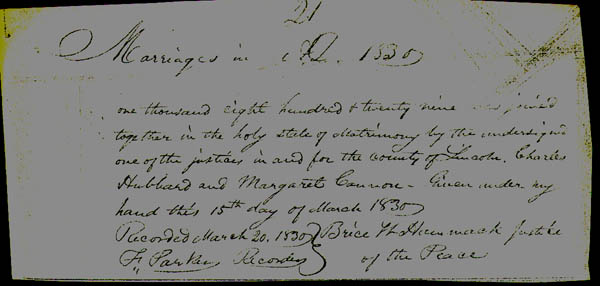 21
Marriages in 1830
one thousand eight hundred & twenty nine was joined
together in the holy state of Matrimony by the undersigned
one of the justices in and for the county of Lincoln, Charles
Hubbard and Margaret Cannon - Given under my
hand this 15th day of March 1830
Recorded March 20, 1830 } Brice W Hammack Justice
F. Parker Recorder } of the Peace